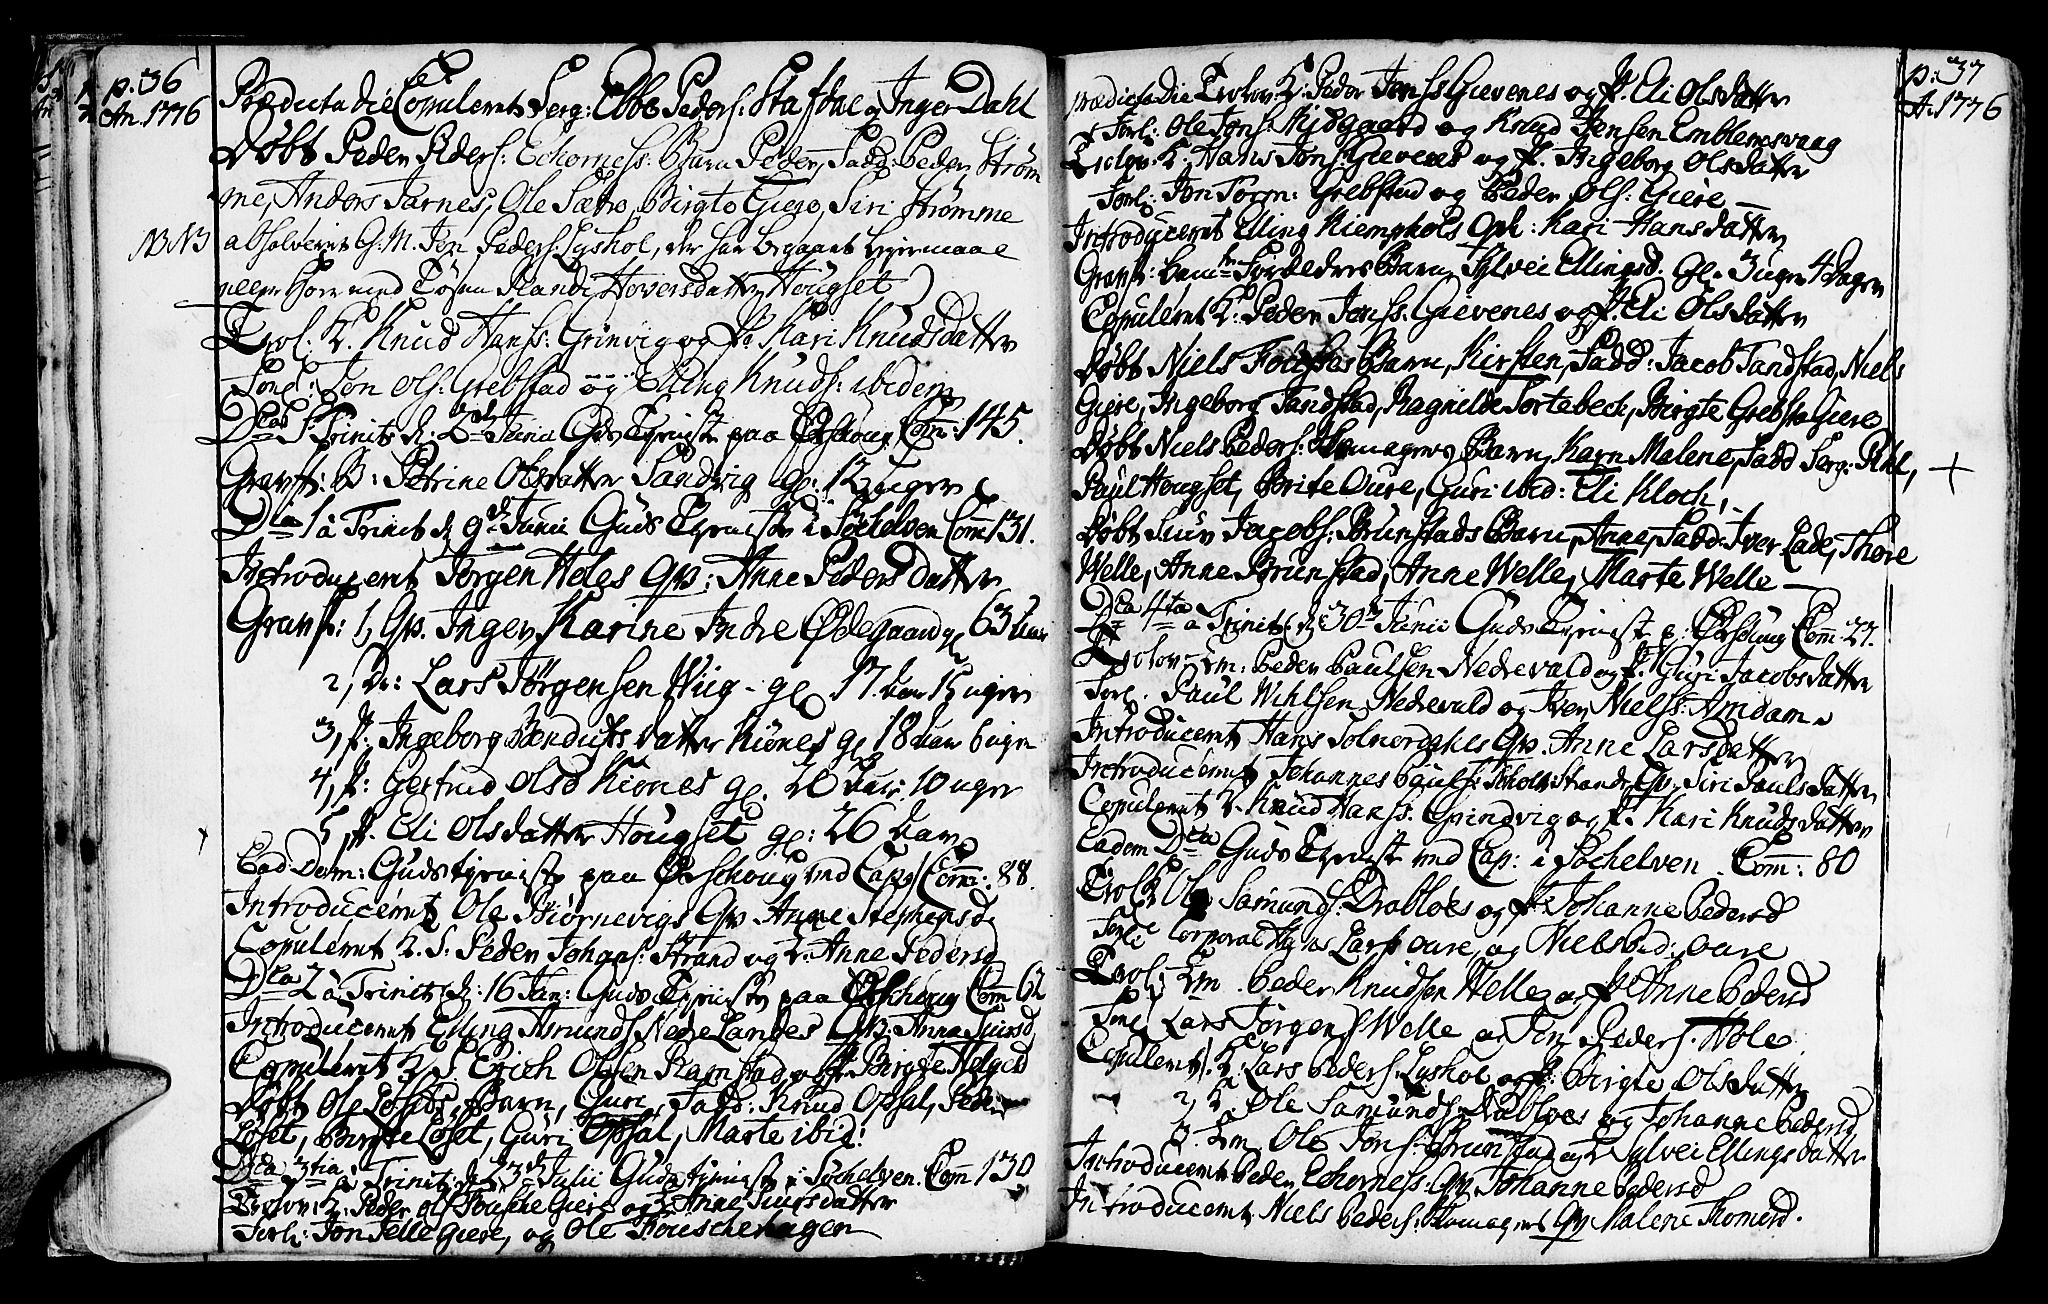 p. 36
An. 1776
Prædicta die Copulerit Serg: Ebbe Peders: Stafdal og Inger Dahl
Døbt Peder Peders: Echorness: Barn Peder, Fadd: Peder Ström
me, Anders Tarnes, Ole Sætre, Birgte Giere, Siri Strømme
NB NB
absolverit G. M. Jon Peders: Lyshol, der har begaaet leiermaal
med Tøsen Randi Hoversdatter Hougset
Trol: K. Knud Hanss: Grinvig og P. Kari Knudsdatter
Forl: Jon Ols: Grebstad og Elling Knuds: ibidem
Dca Trinit: d: 2d Junii Guds Tjeniste paa Ørschoug Com: 145.
Gravf: B: Petrine Olsdatter Sandvig gl: 12 uger
Dca 1 a Trinit d 9d Junii Guds Tjeniste i Søchelven Com 131.
Introducerit Jørgen Heles Qv: Anne Pedersdatter
Gravf: 1, Qv. Inger Karine Indre Ødegaard gl 63 Aar
2, Dr: Lars Jørgensen Wiig - gl 17 Aar 15 uger
3, P: Ingeborg Bendicts datter Kiönes gl 18 Aar 6 uger
4, P: Gertrud Olsd Kiönes gl. 20 Aar: 10 uger
5, P. Eli Olsdatter Hougset gl: 26 Aar
Ead: Dom: Gudstjeniste paa Ørschoug ved Cap: Com: 88.
Introducerit Ole Biørnevigs Qv Anne Stephensd
Copulerit K. S: Peder Johans: Strand og P: Anne Pedersd
Dca 2 a Trinit d: 16 Jun: Guds Tjeniste paa Ørschoug Com 62
Introducerit Elling Asmunds: Nedre Landes Qv: Anna Siursd
Copulerit K S Erich Olsen Ramstad og P Birgte Helgesd
Døbt Ole Løsets Barn, Guri, Fadd: Knud Opsal, Peder
Løset, Birgte Løset, Guri Opsal, Marte ibid:
Dca 3tia a Trinit: d 23d Julii Gudstjeniste i Søchelven. Com 130
Trolov: K: Peder Ols: Fousche Giere og P Anne Siursdatter
Forl: Jon Pelle Giere, og Ole Fouschehagen
p: 37
A. 1776
Prædicta Die Trolov K: Peder Jonss Gievenes og P. Eli Olsdatter
Forl: Ole Jons: Mjögaard og Knud Jensen Emblemsvaag
Trolov: K. Hans Jons: Gievenes og P. Ingeborg Olsdatter
Forl: Jon Torm: Grebstad og Peder Ols: Giere
Introducerit Elling Kiemphols Qv: Kari Hansdatter
Gravf: Barn Sylvei Ellingsd. Gl. 3 uger 4 Dager
Copulerit K: Peder Jonss: Gievenes og P. Eli Olsdatter
Døbt Niels Fousches Barn, Kirsten, Fadd: Jacob Tandstad, Niels
Giere, Ingeborg Tandstad, Ragnilde Tortebeck, Birgte Grebsta Giere
Døbt Niels Peders: Homagers Barn, Karn Malene, Fadd Serg: Pihl,
Paul Hougset, Brite Oure, Guri ibid: Eli Kloch,
Døbt Siur Jacobs: Brunstads Barn, Anne, Fadd: Iver Lade, Thore
Welle, Anne Brunstad, Anne Welle, Marte Welle
Dca 4ta a Trinit d 30te Junii Guds Tjeniste p: Ørschoug Com: 27.
Trolov Em: Peder Paulsen Nedrevald og P. Guri Jacobsdatter
Forl. Paul Wihlsen Nedrevald og Iver Nielss: Amdam
Introducerit Hans Solnordahles Qv. Anne Larsdatter
Introducerit Johannes Pauls: Strande Qv. Siri Paulsdatter
Copulerit K. Knud Hanss. Grindvig og P. Kari Knudsdatter
Eadem Dca Guds Tjeniste ved Cap: i Søchelven. Com: 80
Trol K Ole Samunds: Drabløes og P Johanne Pedersd
Forl: Corporal Hans Lars: oure, og Niels ibid: oare
Trol: Em. Peder Knudsen Welle og P Anne Pedersd
Forl: Lars Jørgens Welle og Jon Peders: Hole
Copulerit 1. K. Lars Peders: Lyshol og P: Birgte Olsdatter
2, K Ole Samunds: Drabløes og Johanne Pedersd
3. Em Ole Jons: Brunstad og P Sylvei Ellingsdatter
Introducerit Peder Echorness: Qv Johanne Pedersd
Introducerit Niels Peders: Homagers Qv Malene Thomesd.